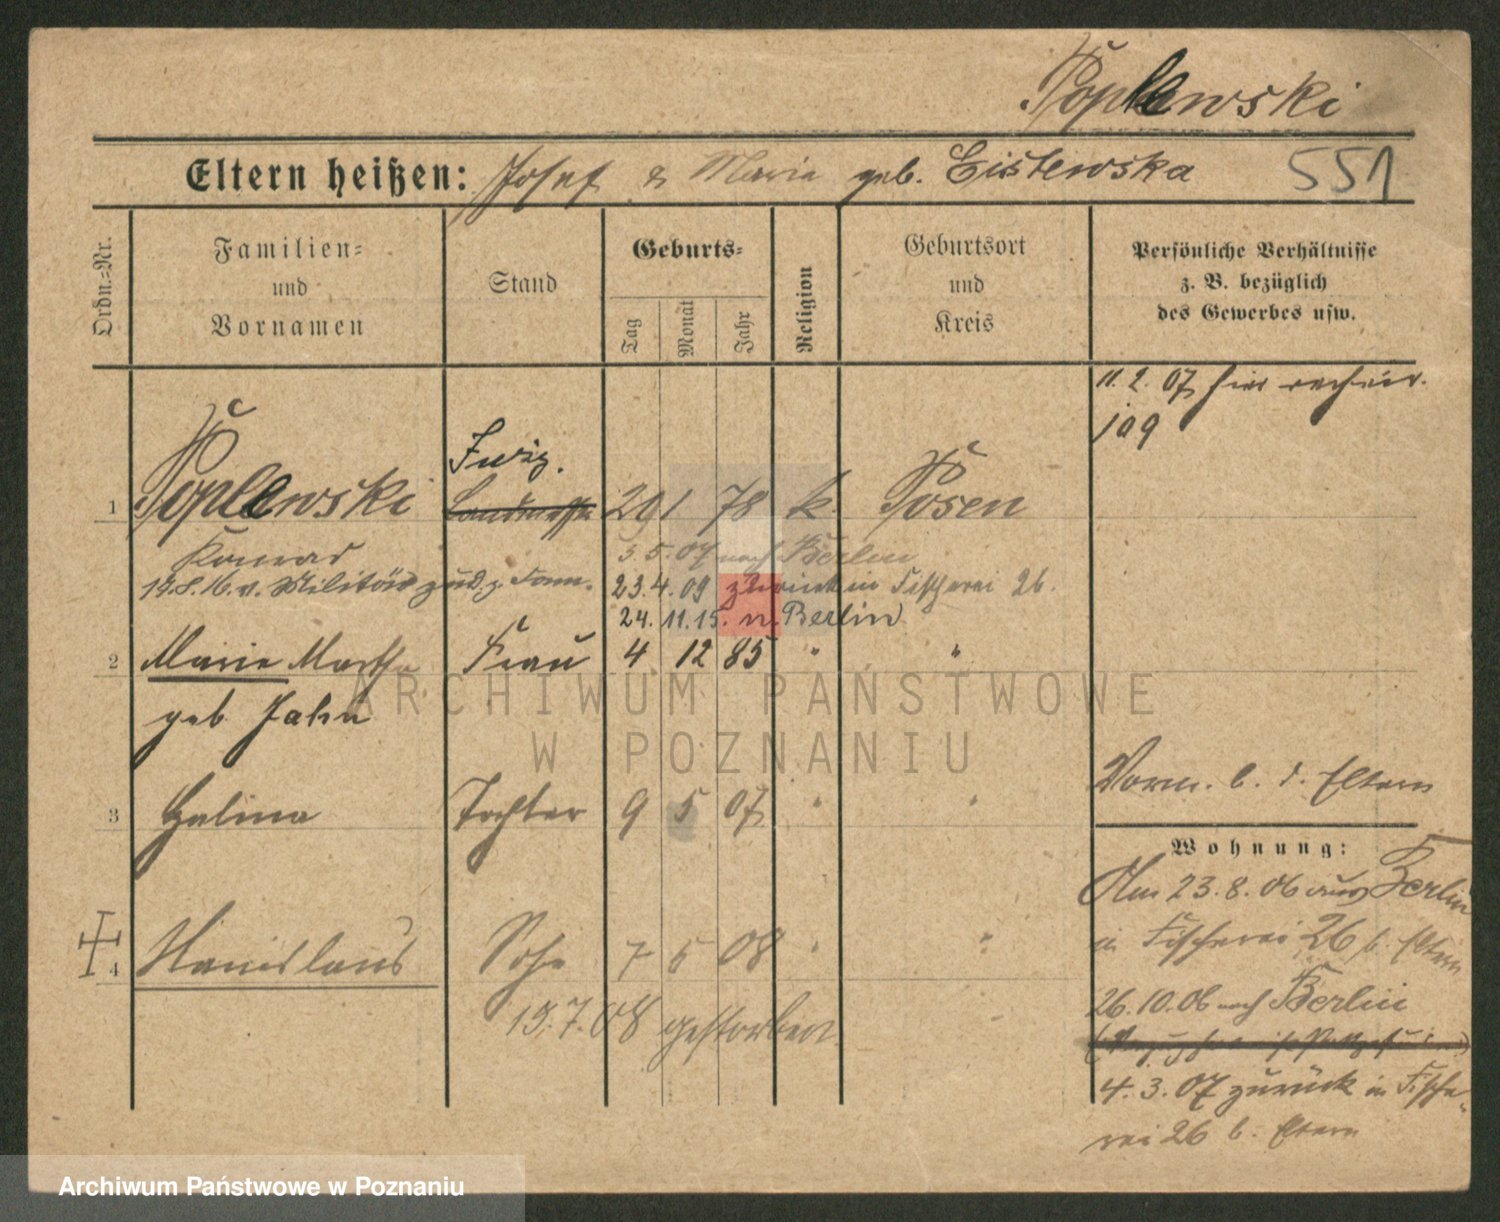 Poplewski
Eltern heißen: Josef & Maria geb. Cistewska 551
Ordn.=Nr.
Familien=
und
Vornamen
Stand
Geburts=
Tag
Monat
Jahr
Religion
Geburtsort
und
Kreis
Persönliche Verhältnisse
z. B. bezüglich
des Gewerbes usw.
11. 2. 07 hier
109
1 Poplewski 29 1 78 k. Posen
Konrad 3. 5. 07 nach Berlin
v. Militär 23. 4. 09 zurück in Fischerei 26.
24. 11. 15. n. Berlin
2 Marie Martha Frau 4 12 85 " "
geb Jahn
3 Halina Tochter 9 5 07 " "
Vorm. b. d. Eltern
Wohnung:
4 Stanislaus Sohn 7 6 08 " "
gestorben
Am 23. 8. 06 aus Berlin
in Fischerei 26 b. Eltern
26. 10. 06 nach Berlin
4. 3. 07 zurück in Fische-
rei 26 b. Eltern
ARCHIWUM PAŃSTWOWE
W POZNANIU
Archiwum Państwowe w Poznaniu